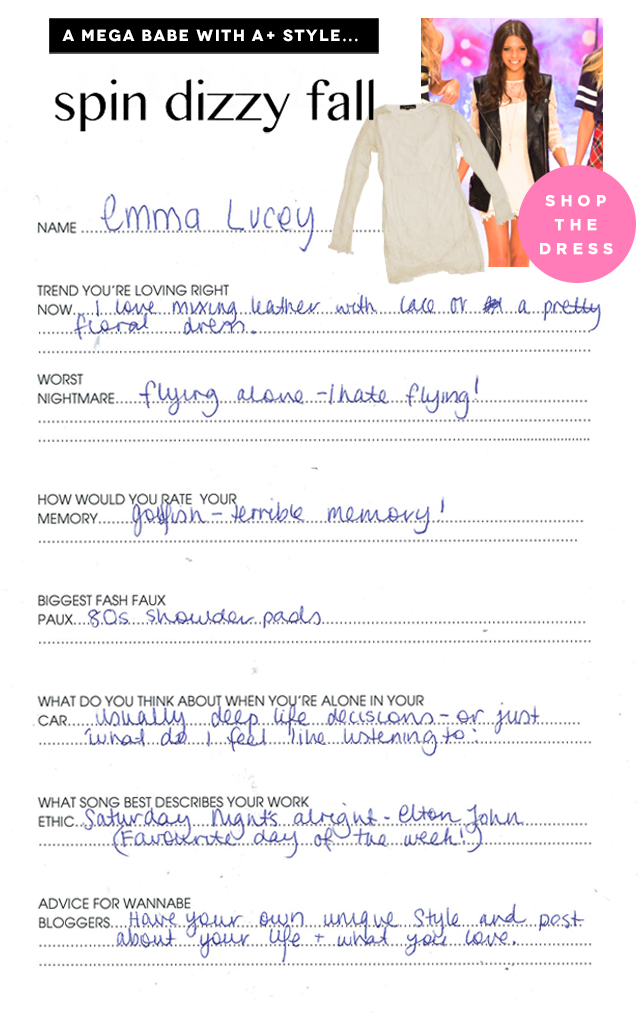 A MEGA BABE WITH A+ STYLE...
spin dizzy fall
SHOP
THE
DRESS
NAME emma Lucey
TREND YOU'RE LOVING RIGHT
NOW... I love mixing leather with lace or a pretty
floral dress.
WORST
NIGHTMARE..... flying alone - I hate flying!
HOW WOULD YOU RATE YOUR
MEMORY........ golfish - terrible memory!
BIGGEST FASH FAUX
PAUX... 80s shoulder pads
WHAT DO YOU THINK ABOUT WHEN YOU'RE ALONE IN YOUR
CAR...... usually deep life decisions - or just
'what do I feel like listening to'
WHAT SONG BEST DESCRIBES YOUR WORK
ETHIC. Saturday Night's alright - elton John
(Favourite day of the week!)
ADVICE FOR WANNABE
BLOGGERS.... Have your own unique Style and post
about your life + what you love.